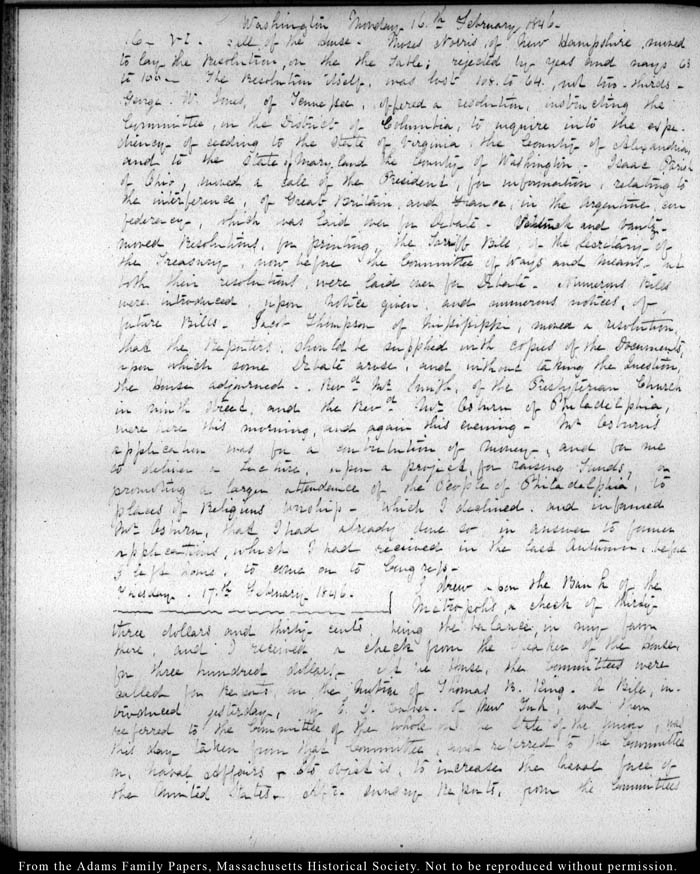 Washington Monday 16.th February 1846.
6- V-I. Hall of the House. Moses Norris, of New Hampshire moved
to lay the Resolution, on the the Table; rejected by yeas and nays 63
to 106- The Resolution itself, was lost 108. to 64, not two-thirds-
George. W. Jones, of Tennessee, offered a resolution, instructing the
Committee, on the District of Columbia, to inquire into the expe-
diency of ceeding to the State of Virginia the County of Alexandria,
and to the State of Maryland the County of Washington- Isaac Parish
of Ohio, moved a call of the President, for information, relating to
the interference, of Great Britain, and France, in the Argentine, con
federacy, which was laid over for Debate- and
moved Resolutions, for printing, the Tariff Bill, of the Secretary of
the Treasury, now before the Committee of Ways and Means, but
both their resolutions, were laid over for Debate- Numerous Bills
were introduced, upon Notice given, and numerous notices, of
future Bills- Jacob Thompson of Mississippi, moved a resolution,
that the Reporters, should be supplied with copies of the Documents,
upon which some Debate arose, and without taking the Question,
the House adjourned. Revd Mr Smith, of the Presbyterian Church
in ninth Street, and the Revd Mr Osburn of Philadelphia,
were here this morning, and again this evening- Mr Osburn's
application was for a contribution of Money, and for me
to deliver a Lecture, upon a project, for raising Funds, or
promoting a larger attendance of the People of Philadelphia, to
places of Religious worship- Which I declined. and informed
Mr Osburn, that I had already done so, in answer to former
applications, which I had received in the last Autumn, before
I left home, to come on to Congress-
Tuesday. 17.th February 1846. I drew upon the Bank of the
Metropolis, a check of thirty
three dollars and thirty cents, being the balance, in my favor
there, and I received a check from the Speaker of the House,
for three hundred dollars- At the House, the Committees were
called for Reports, on the motion of Thomas B. King. A Bill, in-
troduced yesterday, by of New York, and then
referred to the Committee of the whole on the State of the Union, was
this day taken from that Committee, and referred to the Committee
on, Naval Affairs- Its object is, to increase the Naval force of
the United States- After sundry Reports, from the Committees
From the Adams Family Papers, Massachusetts Historical Society. Not to be reproduced without permission.